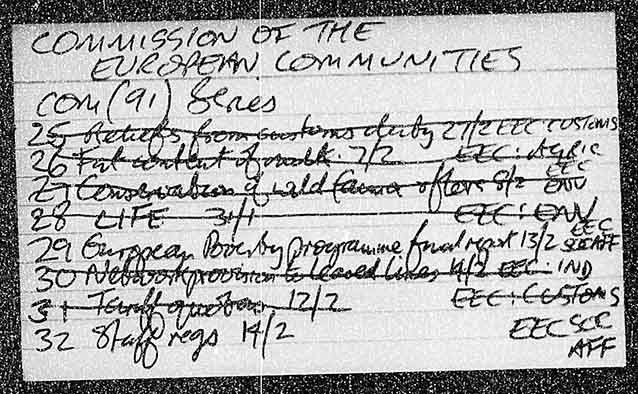 COMMISSION OF THE
EUROPEAN COMMUNITIES
COM (91) Series
25 Reliefs from customs duty 27/2 EEC CUSTOMS
26 Fat content of milk 7/2 EEC: AGRIC
27 Conservation of wild fauna + flora 8/2 EEC ENV
28 LIFE 31/1 EEC: ENV
29 European Poverty programme final report 13/2 EEC SOC AFF
30 Network provision to leased lines 14/2 EEC: IND
31 Tariff quotas 12/2 EEC: CUSTOMS
32 Staff regs 14/2 EEC SOC
AFF